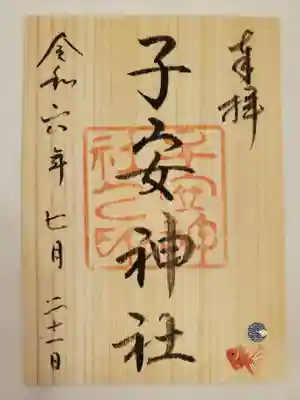 奉拝
子安神社
子安神社之印
令和六年七月二十一日